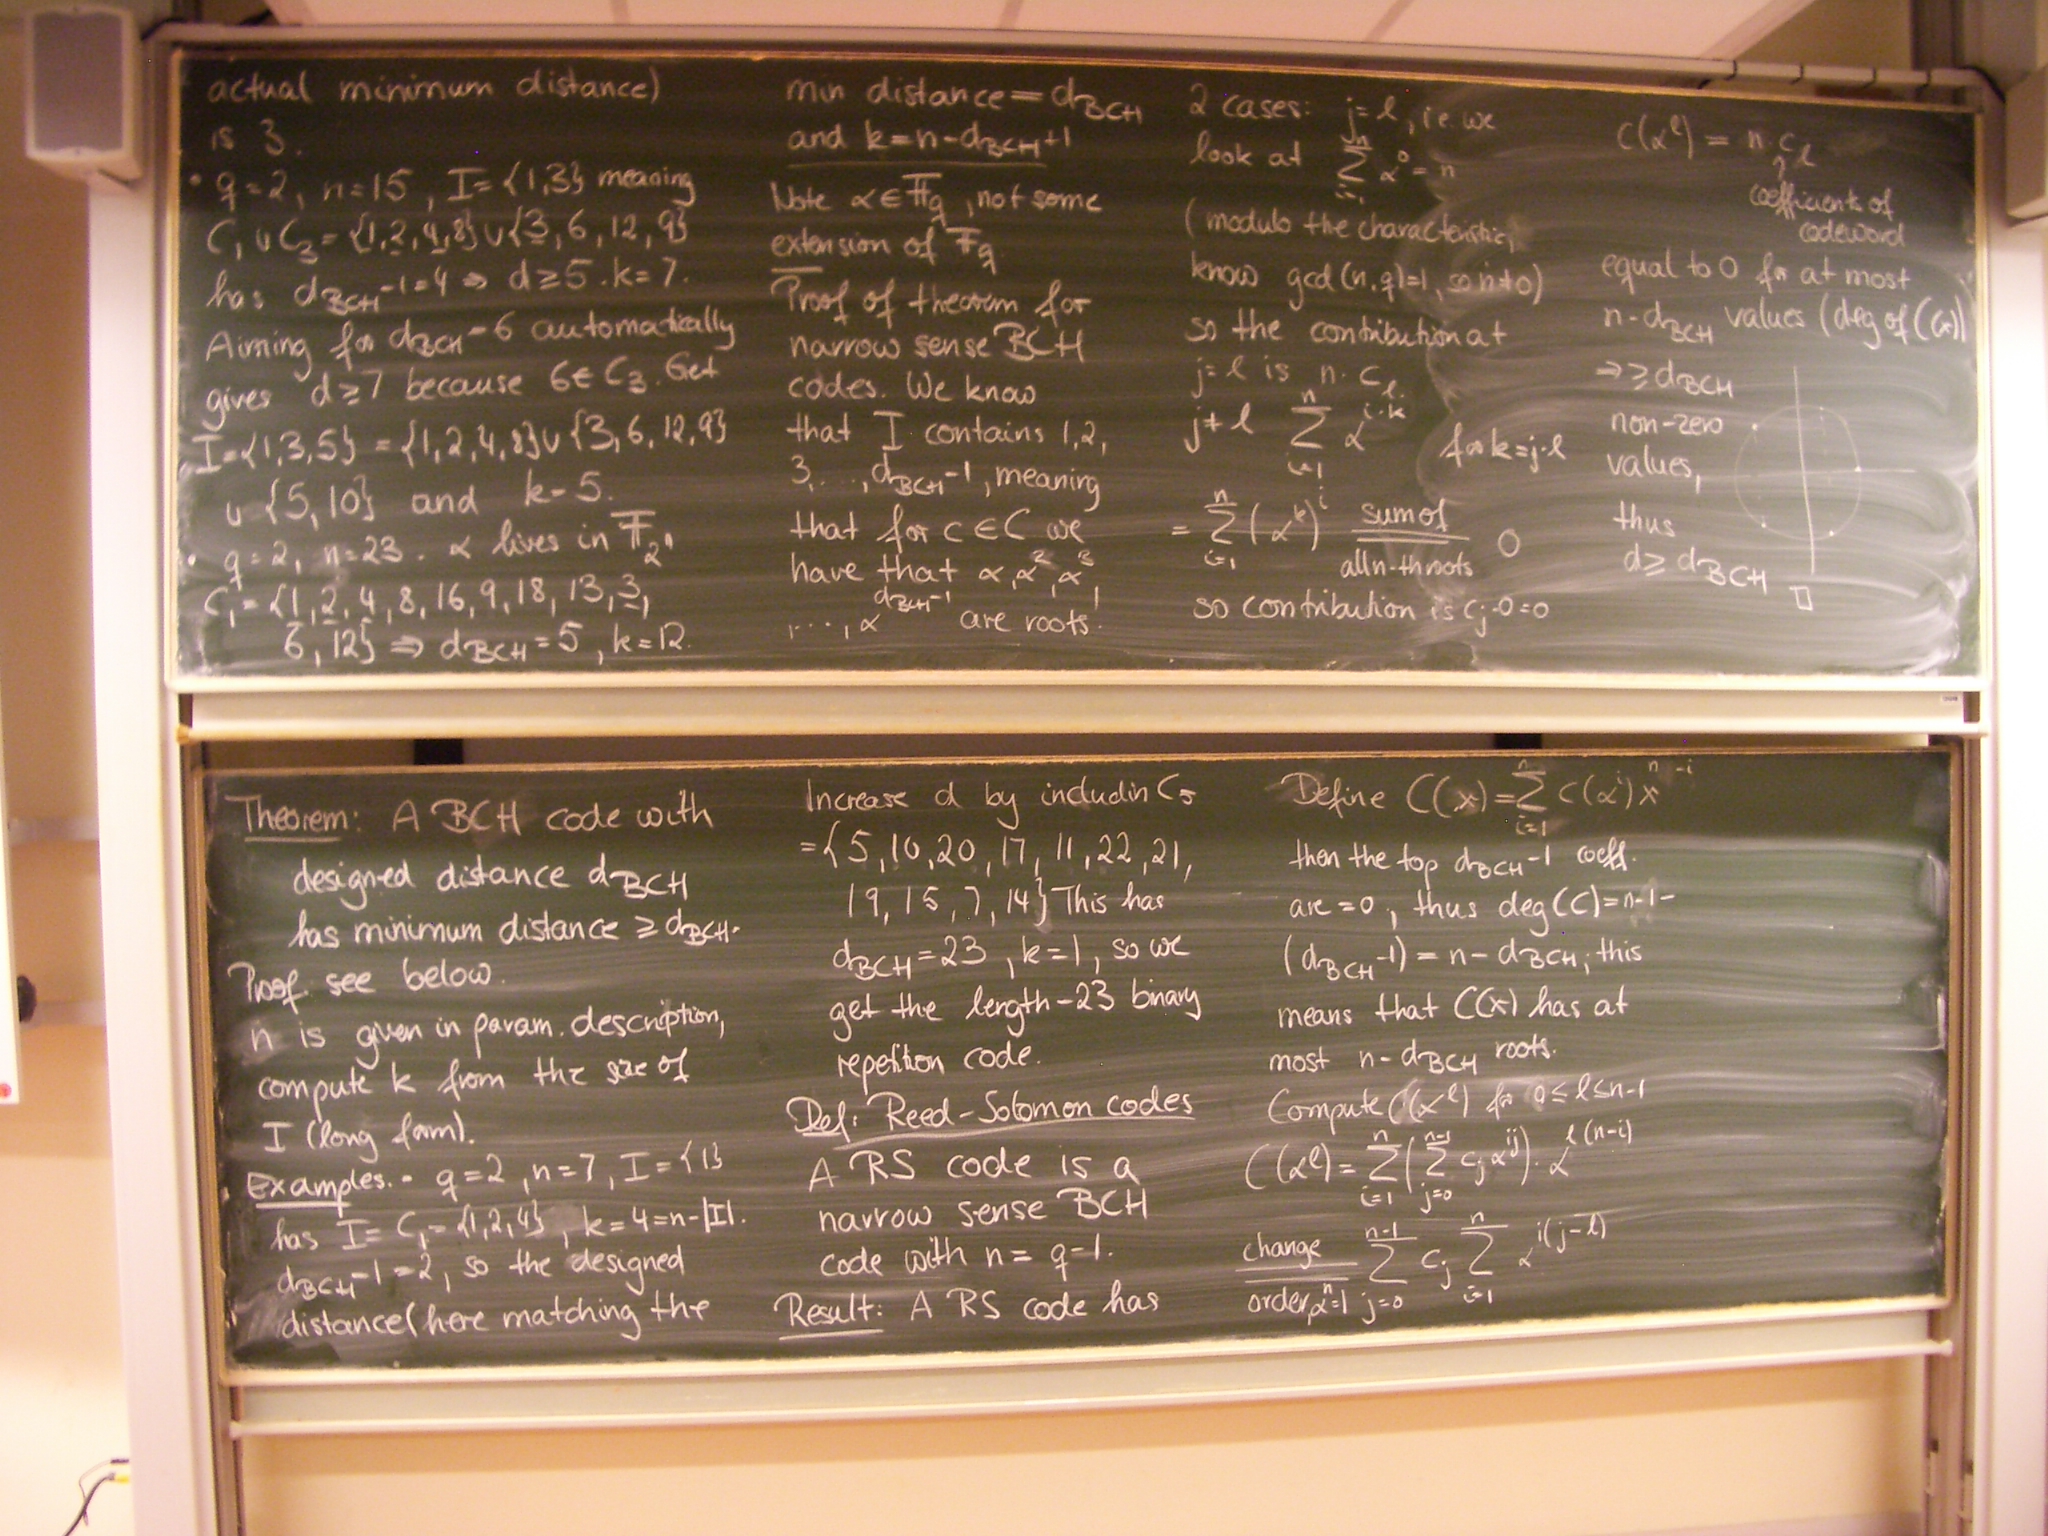 actual minimum distance)
is 3.
• q=2, n=15, I={1,3} meaning
C₁∪C₃={1,2,4,8}∪{3,6,12,9}
has d_BCH-1=4 ⇒ d≥5. k=7.
Aiming for d_BCH=6 automatically
gives d≥7 because 6∈C₃. Get
I={1,3,5} = {1,2,4,8}∪{3,6,12,9}
∪{5,10} and k=5.
• q=2, n=23. α lives in 𝔽_2¹¹
C₁={1,2,4,8,16,9,18,13,3,
6,12} ⇒ d_BCH=5, k=12.
min distance = d_BCH
and k=n-d_BCH+1
Note α∈𝔽_q, not some
extension of 𝔽_q
Proof of theorem for
narrow sense BCH
codes. We know
that I contains 1,2,
3,..., d_BCH-1, meaning
that for c∈C we
have that α, α², α³,
..., α^(d_BCH-1) are roots.
2 cases: j=l, i.e. we
look at Σ_{i=1}^{n} α⁰ = n
(modulo the characteristic,
know gcd(n,q)=1, so n≠0)
so the contribution at
j=l is n·c_l.
j≠l Σ_{i=1}^{n} α^{i·k} for k=j-l
= Σ_{i=1}^{n} (α^k)^i sum of
all n-th roots 0
so contribution is c_j·0=0
C(α^l) = n·c_l
↑
coefficients of
codeword
equal to 0 for at most
n-d_BCH values (deg of C(x))
⇒ ≥ d_BCH
non-zero
values,
thus
d ≥ d_BCH
□
Theorem: A BCH code with
designed distance d_BCH
has minimum distance ≥ d_BCH.
Proof: see below.
n is given in param. description,
compute k from the size of
I (long form).
Examples: • q=2, n=7, I={1}
has I= C₁={1,2,4}, k=4=n-|I|.
d_BCH-1=2, so the designed
distance (here matching the
Increase d by includin C₅
={5,10,20,17,11,22,21,
19,15,7,14} This has
d_BCH=23, k=1, so we
get the length-23 binary
repetition code.
Def: Reed-Solomon codes
A RS code is a
narrow sense BCH
code with n= q-1.
Result: A RS code has
Define C(x)=Σ_{i=1}^{n} c(α^i) x^{n-i}
then the top d_BCH-1 coeff.
are =0, thus deg(C)=n-1-
(d_BCH-1) = n-d_BCH; this
means that C(x) has at
most n-d_BCH roots.
Compute C(α^l) for 0≤l≤n-1
C(α^l)= Σ_{i=1}^{n} (Σ_{j=0}^{n-1} c_j α^{ij})·α^{l(n-i)}
change
order, α^n=1 Σ_{j=0}^{n-1} c_j Σ_{i=1}^{n} α^{i(j-l)}